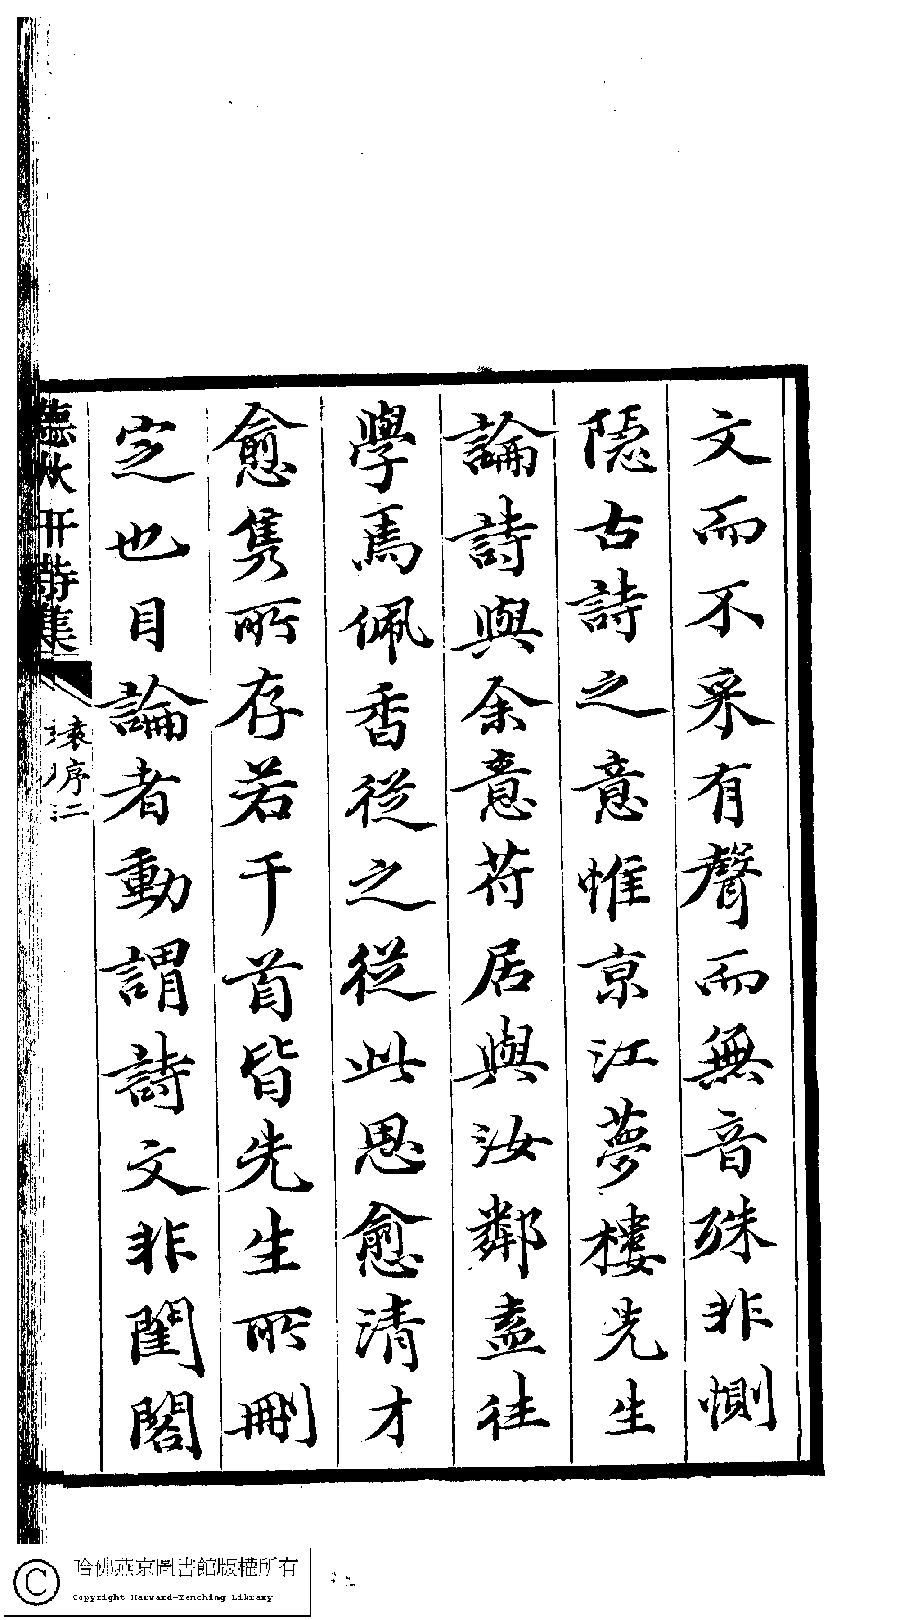 文而不采有聲而無音殊非惻
隱古詩之意惟京江夢樓先生
論詩與余意符居與汝鄰盍往
學焉佩香從之從此思愈清才
愈雋所存若干首皆先生所刪
定也目論者動謂詩文非閨閣
聽秋軒詩集
袁序 二
哈佛燕京圖書館版權所有
Copyright Harvard-Yenching Library